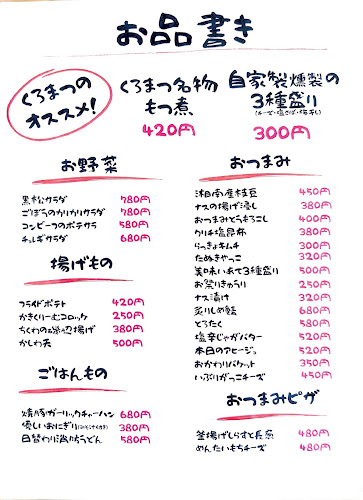 お品書き
くろまつの
オススメ!
くろまつ名物
もつ煮
420円
自家製燻製の
3種盛り
300円
お野菜
黒松サラダ 780円
ごぼうのカリカリサラダ 780円
コンビーフのポテサラ 580円
チョレギサラダ 680円
揚げもの
フライドポテト 420円
かきくりーむコロッケ 250円
ちくわの磯辺揚げ 380円
かしわ天 500円
ごはんもの
焼豚ガーリックチャーハン 680円
優しいおにぎり 380円
日替わり うどん 580円
おつまみ
湘南産枝豆 450円
ナスの揚げ浸し 380円
おつまみとうもろこし 400円
クリチ塩昆布 380円
らっきょキムチ 300円
たぬきやっこ 320円
美味いあて3種盛り 500円
お祭りきゅうり 250円
ナス漬け 320円
炙りしめ鯖 680円
とろたく 580円
塩辛じゃがバター 520円
本日のアヒージョ 520円
おかわりバケット 350円
いぶりがっこチーズ 450円
おつまみピザ
釜揚げしらすと長葱 480円
めんたいもちチーズ 480円